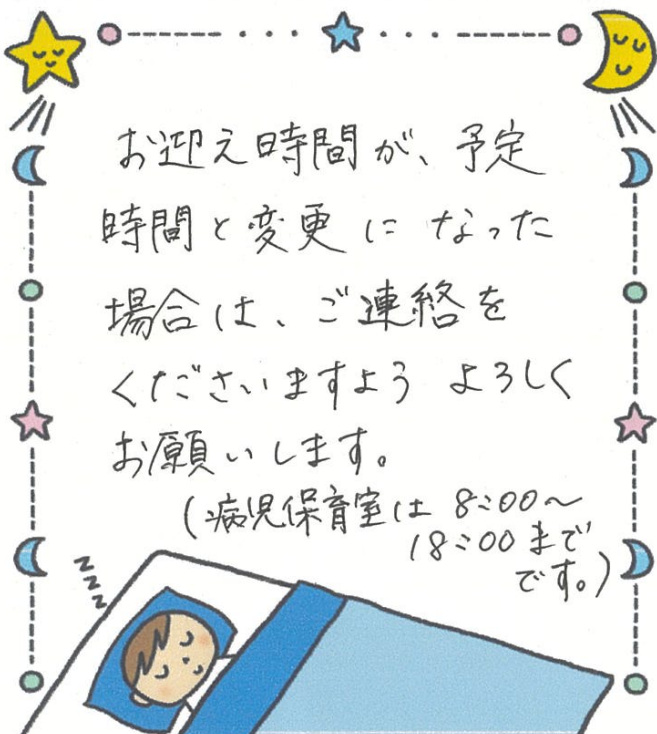 お迎え時間が、予定
時間と変更になった
場合は、ご連絡を
くださいますよう よろしく
お願いします。
(病児保育室は 8:00～
18:00まで
です。)
zzz